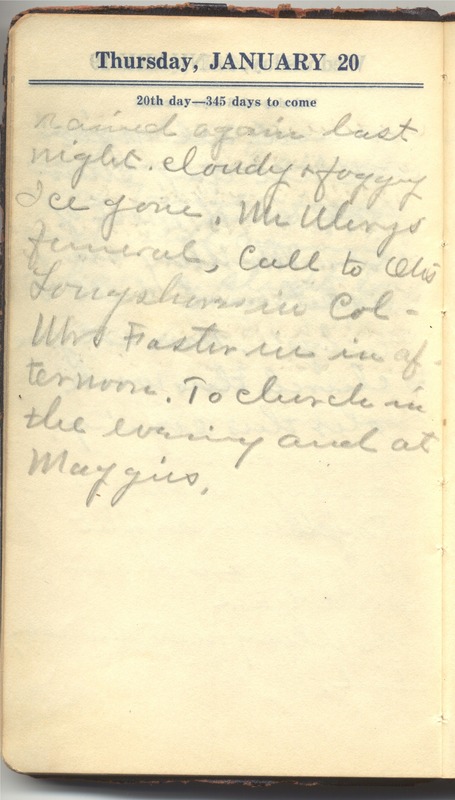 Thursday, JANUARY 20
20th day—345 days to come
rained again last
night. cloudy & foggy
Ice gone. Mr
funeral, Call to Otis
in Col-
Mrs Foster in in af-
ternoon. To church in
the evening and at
Maggies.